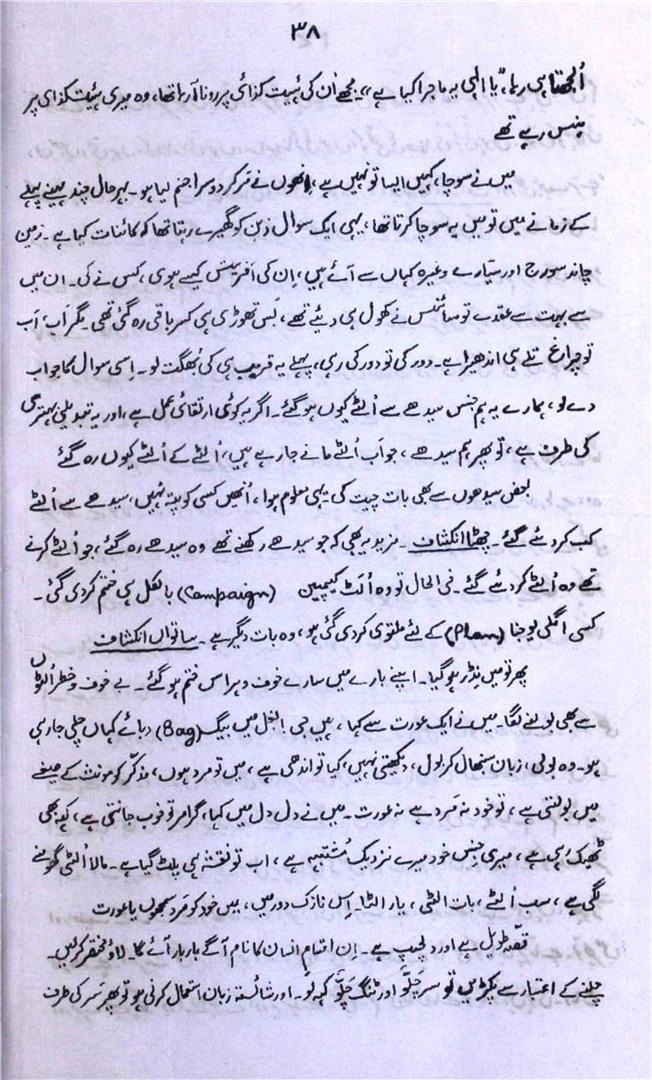 ۳۸
اُلجھتا ہی رہا، ”یا الٰہی یہ ماجرا کیا ہے“، مجھے اُن کی ہئیت کذائی پر رونا آرہا تھا، وہ میری ہئیت کذائی پر
ہنس رہے تھے
میں نے سوچا، کہیں ایسا تو نہیں ہے، اِنھوں نے مَر کر دوسرا جنم لیا ہو۔ بہر حال چند مہینے پہلے
کے زمانے میں تو میں یہ سوچا کرتا تھا، یہی ایک سوال ذہن کو گھیرے رہتا تھا کہ کائنات کیا ہے۔ زمین
چاند سورج اور سیّارے وغیرہ کہاں سے آئے ہیں، اِن کی آفرینش کیسے ہوی، کس نے کی۔ ان میں
سے بہت سے عقدے تو سائنس نے کھول ہی دیئے تھے، بَس تھوڑی ہی کسر باقی رہ گئی تھی۔ مگر اَب، اَب
تو چراغ تلے ہی اندھیرا ہے۔ دور کی تو دور کی رہی، پہلے یہ قریب ہی کی بُھگت لو۔ اِسی سوال کا جواب
دے لو، ہمارے یہ ہم جنس سیدھے سے اُلٹے کیوں ہو گئے۔ اگر یہ کوئی ارتقائی عمل ہے، اور یہ تبدیلی بہتری
کی طرف ہے، تو پھر ہم سیدھے، جو اَب اُلٹے مانے جا رہے ہیں، اُلٹے کے اُلٹے کیوں رہ گئے
بعض سیدھوں سے بھی بات چیت کی یہی معلوم ہوا، اُنھیں کسی کو پتہ نہیں، سیدھے سے اُلٹے
کب کر دئے گئے۔ چھٹا انکشاف۔ مزید یہ بھی کہ جو سیدھے رکھنے تھے وہ سیدھے رہ گئے، جو اُلٹے کرنے
تھے وہ اُلٹے کر دئے گئے۔ فی الحال تو وہ اُلَٹ کیمپین (Campaign) بالکل ہی ختم کر دی گئی۔
کسی اگلی یوجنا (Plan) کے لئے ملتوی کر دی گئی ہو، وہ بات دیگر ہے۔ ساتواں انکشاف
پھر تو میں نِڈر ہو گیا۔ اپنے بارے میں سارے خوف و ہراس ختم ہو گئے۔ بے خوف و خطر اُلٹوں
سے بھی بولنے لگا۔ میں نے ایک عورت سے کہا، بی جی بغل میں بیگ (Bag) دبائے کہاں چلی جا رہی
ہو۔ وہ بولی، زبان سنبھال کر بول، دیکھتی نہیں، کیا تو اندھی ہے، میں تو مرد ہوں، مذکّر کو مونث کے صیغے
میں بولتی ہے، تو خود نہ مَرد ہے نہ عورت۔ میں نے دل دل میں کہا، گرامر تو خوب جانتی ہے، کہہ بھی
ٹھیک رہی ہے، میری جنس خود میرے نزدیک مُشتبہ ہے، اب تو نقشہ ہی پلٹ گیا ہے۔ مالا اُلٹی گھومنے
لگی ہے، سب اُلٹے، بات الٹی، یار الٹا۔ اِس نازک دور میں، میں خود کو مَرد سمجھوں یا عورت
قصّہ طویل ہے اور دلچسپ ہے۔ اِن اقسامِ انسان کا نام آگے بار بار آئے گا۔ لاؤ مختصر کر لیں۔
چلنے کے اعتبار سے پکڑیں تو سر چَلّو اور ٹنگ چَلّو کہہ لو۔ اور شائستہ زبان استعمال کرنی ہو تو پھر سَر کی طرف